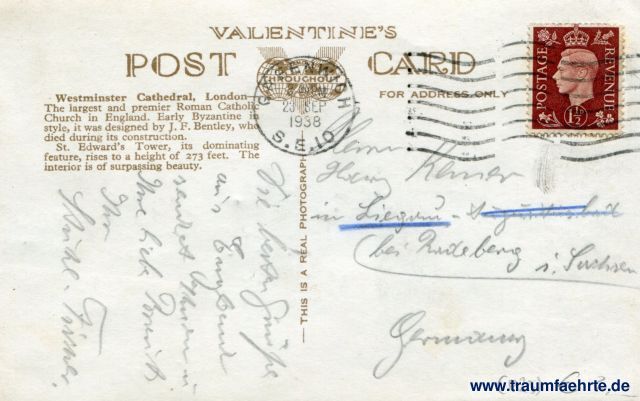 VALENTINE'S
POST CARD
FOR ADDRESS ONLY
Westminster Cathedral, London
The largest and premier Roman Catholic
Church in England. Early Byzantine in
style, it was designed by J. F. Bentley, who
died during its construction.
St. Edward's Tower, its dominating
feature, rises to a height of 273 feet. The
interior is of surpassing beauty.
THROUGHOUT
GREENWICH
23 SEP
1938
S.E.10
POSTAGE
REVENUE
1½D
THIS IS A REAL PHOTOGRAPH
Herrn
in Liegau-Augustusbad
(bei Radeberg
i. Sachsen
Germany
Die besten Grüße
aus England
sendet Ihnen u.
Ihre
www.traumfaehrte.de